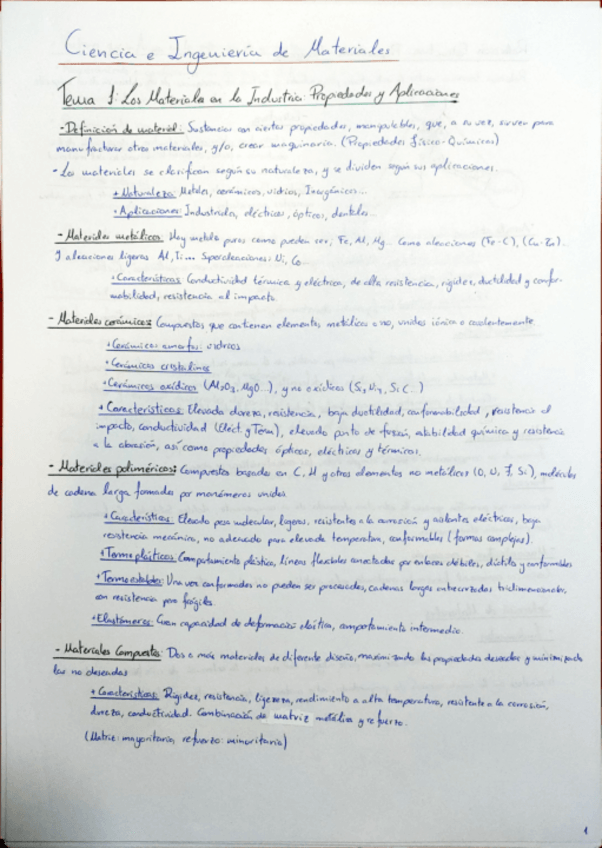 Ciencia e Ingeniería de Materiales
Tema 1: Los Materiales en la Industria: Propiedades y Aplicaciones
- Definición de material: Sustancias con ciertas propiedades, manipulables, que, a su vez, sirven para
manufacturar otros materiales, y/o, crear maquinaria. (Propiedades Físico-Químicas)
- Los materiales se clasifican según su naturaleza, y se dividen según sus aplicaciones.
+ Naturaleza: Metales, cerámicos, vidrios, Inorgánicos...
+ Aplicaciones: Industriales, eléctricos, ópticos, dentales...
- Materiales metálicos: Hay metales puros como pueden ser; Fe, Al, Mg... Como aleaciones (Fe-C), (Cu-Zn).
Y aleaciones ligeras Al, Ti... Superaleaciones: Ni, Co
+ Características: Conductividad térmica y eléctrica, de alta resistencia, rigidez, ductilidad y confor-
mabilidad, resistencia al impacto.
- Materiales cerámicos: Compuestos que contienen elementos metálicos o no, unidos iónica o covalentemente.
+ Cerámicos amorfos: vidrios
+ Cerámicos cristalinos
+ Cerámicos oxídicos (Al2O3, MgO...), y no oxídicos (Si3N4, SiC...)
+ Características: Elevada dureza, resistencia, baja ductilidad, conformabilidad, resistencia al
impacto, conductividad (Eléct. y Térm), elevado punto de fusión, estabilidad química y resistencia
a la abrasión, así como propiedades ópticas, eléctricas y térmicas.
- Materiales poliméricos: Compuestos basados en C, H y otros elementos no metálicos (O, N, F, Si), moléculas
de cadena larga formadas por monómeros unidos.
+ Características: Elevado peso molecular, ligeros, resistentes a la corrosión y aislantes eléctricos, baja
resistencia mecánica, no adecuado para elevada temperatura, conformables (formas complejas).
+ Termoplásticos: Comportamiento plástico, líneas flexibles conectadas por enlaces débiles, dúctiles y conformables
+ Termoestables: Una vez conformados no pueden ser procesados, cadenas largas entrecruzadas tridimensionales,
con resistencia pero frágiles.
+ Elastómeros: Gran capacidad de deformación elástica, comportamiento intermedio.
- Materiales Compuestos: Dos o más materiales de diferente diseño, maximizando las propiedades deseadas y minimizando
las no deseadas
+ Características: Rigidez, resistencia, ligereza, rendimiento a alta temperatura, resistente a la corrosión,
dureza, conductividad. Combinación de matriz metálica y refuerzo.
(Matriz: mayoritaria, refuerzo: minoritaria)
1